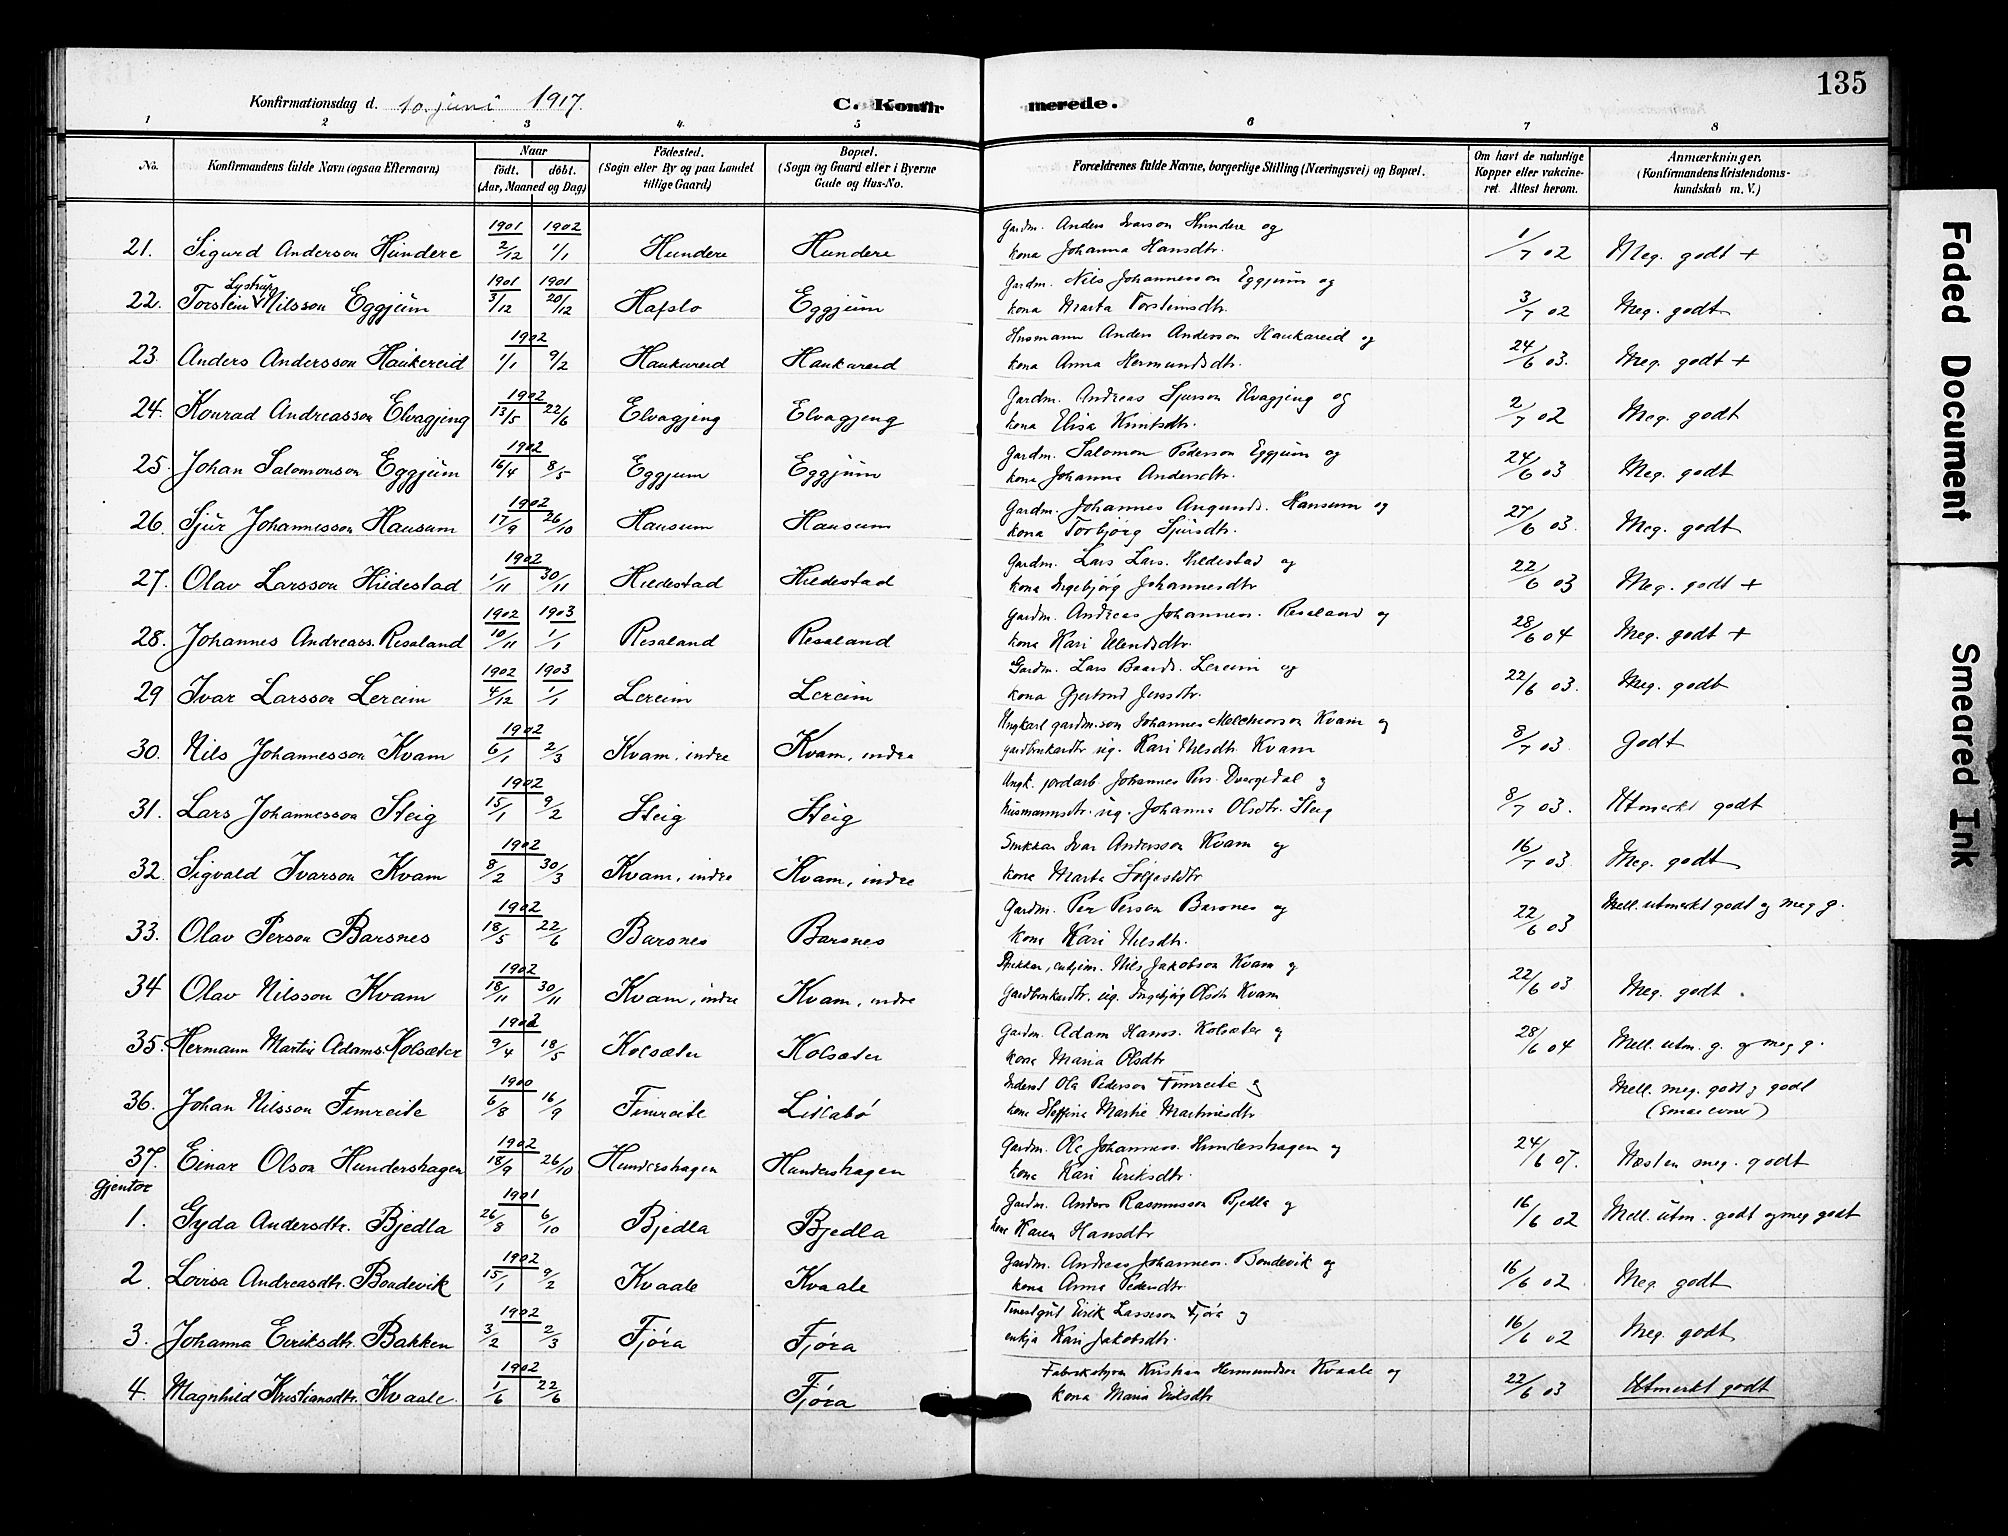 135
Konfirmationsdag d. 10. juni 1917.
C. Konfirmerede.
1 2 3 4. 5 6 7 8
No. Konfirmandens fulde Navn (ogsaa Efternavn) Naar født. døbt. (Aar, Maaned og Dag) Fødested. (Sogn eller By og paa Landet tillige Gaard) Bopæl. (Sogn og Gaard eller i Byerne Gade og Hus-No. Forældrenes fulde Navne, borgerlige Stilling (Næringsvei) og Bopæl. Om havt de naturlige Kopper eller vakcineret. Attest herom. Anmærkninger. (Konfirmandens Kristendomskundskab m. V.)
21. Sigurd Anderson Hundere 1901 2/12 1902 1/1 Hundere Hundere Gardm. Anders Ivarson Hundere og kona Johanna Hansdtr. 1/7 02 Meg. godt +
22. Torstein Lystrup Nilsson Eggjum 1901 3/12 1901 20/12 Hafslo Eggjum Gardm. Nils Johannesson Eggjum og kona Marta Torsteinsdtr. 3/7 02 Meg. godt
23. Anders Andersson Haukereid 1902 1/1 9/2 Haukareid Haukareid Husmann Anders Anderson Haukareid og kona Anna Hermundsdtr. 24/6 03. Meg. godt +
24. Konrad Andreasson Elvagjeng 1902 13/5 22/6 Elvagjeng Elvagjeng Gardm. Andreas Sjurson Elvagjeng og kona Elisa Knutsdtr. 2/7 02 Meg. godt
25. Johan Salomonson Eggjum 1902 16/4 8/5 Eggjum Eggjum Gardm. Salomon Pederson Eggjum og kona Johanna Andersdtr. 24/6 03 Meg. godt
26. Sjur Johannesson Hausum 1902 17/9 26/10 Hausum Hausum Gardm. Johannes Amunds. Hausum og kona Torbjørg Sjursdtr. 27/6 03. Meg. godt
27. Olav Larsson Hildestad 1902 1/11 30/11 Hildestad Hildestad Gardm. Lars Lars. Hildestad og kona Ingebjørg Johannesdtr 22/6 03 Meg. godt +
28. Johannes Andreass. Resaland 1902 10/11 1903 1/1 Resaland Resaland Gardm. Andreas Johanness. Resaland og kona Kari Elendsdtr. 28/6 04 Meg. godt +
29 Ivar Larsson Lereim 1902 4/12 1903 1/1 Lereim Lereim Gardm. Lars Baards. Lereim og kona Gjertrud Jensdtr. 22/6 03. Meg. godt
30. Nils Johannesson Kvam 1902 6/1 2/3 Kvam, indre Kvam, indre Ungkarl gardm.son Johannes Melchiorson Kvam og gardbrukardtr. ug. Kari Nilsdtr. Kvam 8/7 03. Godt
31. Lars Johannesson Steig 1902 15/1 9/2 Steig Steig Ungk. jordarb. Johannes Pers. Dvergedal og husmannsdtr. ug. Johanna Olsdtr. Steig 8/7 03. Utmerkt godt
32. Sigvald Ivarson Kvam 1902 8/2 30/3 Kvam, indre Kvam, indre Snikkar Ivar Andersson Kvam og kona Marta Sølfestdtr 16/7 03. Meg. godt
33. Olav Person Barsnes 1902 18/5 22/6 Barsnes Barsnes Gardm. Per Person Barsnes og kona Kari Nilsdtr. 22/6 03 Mell. utmerkt godt og meg g.
34 Olav Nilsson Kvam 1902 18/11 30/11 Kvam, indre Kvam, indre Nils Jakobson Kvam og Gardbrukardtr. ug. Ingebjørg Olsdtr Kvam 22/6 03 Meg. godt
35. Hermann Martin Adams. Kolsæter 1902 9/4 18/5 Kolsæter Kolsæter Gardm. Adam Hans. Kolsæter og kona Maria Olsdtr 28/6 04 Mell. utm. g. og meg g.
36. Johan Nilsson Fimreite 1900 6/8 16/9 Fimreite Litlabø Inderst Ola Pederson Fimreite og kona Steffina Martie Martinsdtr Mell. meg. godt og godt (smaa evner)
37. Einar Olson Hundershagen 1902 18/9 26/10 Hundershagen Hundershagen Gardm. Ole Johanness. Hundershagen og kona Kari Eriksdtr. 24/6 07. Næsten meg. godt
Gjentor
1. Gyda Andersdtr. Bjedla 1901 26/8 6/10 Bjedla Bjedla Gardm. Anders Rasmusson Bjedla og kona Karen Hansdtr 16/6 02 Mell. utm. godt og meg godt
2. Lovisa Andreasdtr. Bondevik 1902 15/1 9/2 Kvaale Kvaale Gardm. Andreas Johanness. Bondevik og kona Anna Pedersdtr 16/6 02. Meg. godt
3. Johanna Eiriksdtr. Bakken 1902 3/2 2/3 Fjøra Fjøra Eirik Lasseson Fjøra og enkja Kari Jakobsdtr. 16/6 02 Meg. godt
4. Magnhild Kristiansdtr. Kvaale. 1902 1/6 22/6 Fjøra Kristian Hermundson Kvaale og kona Maria Eriksdtr 22/6 03 Utmerkt godt
Faded Document
Smeared Ink